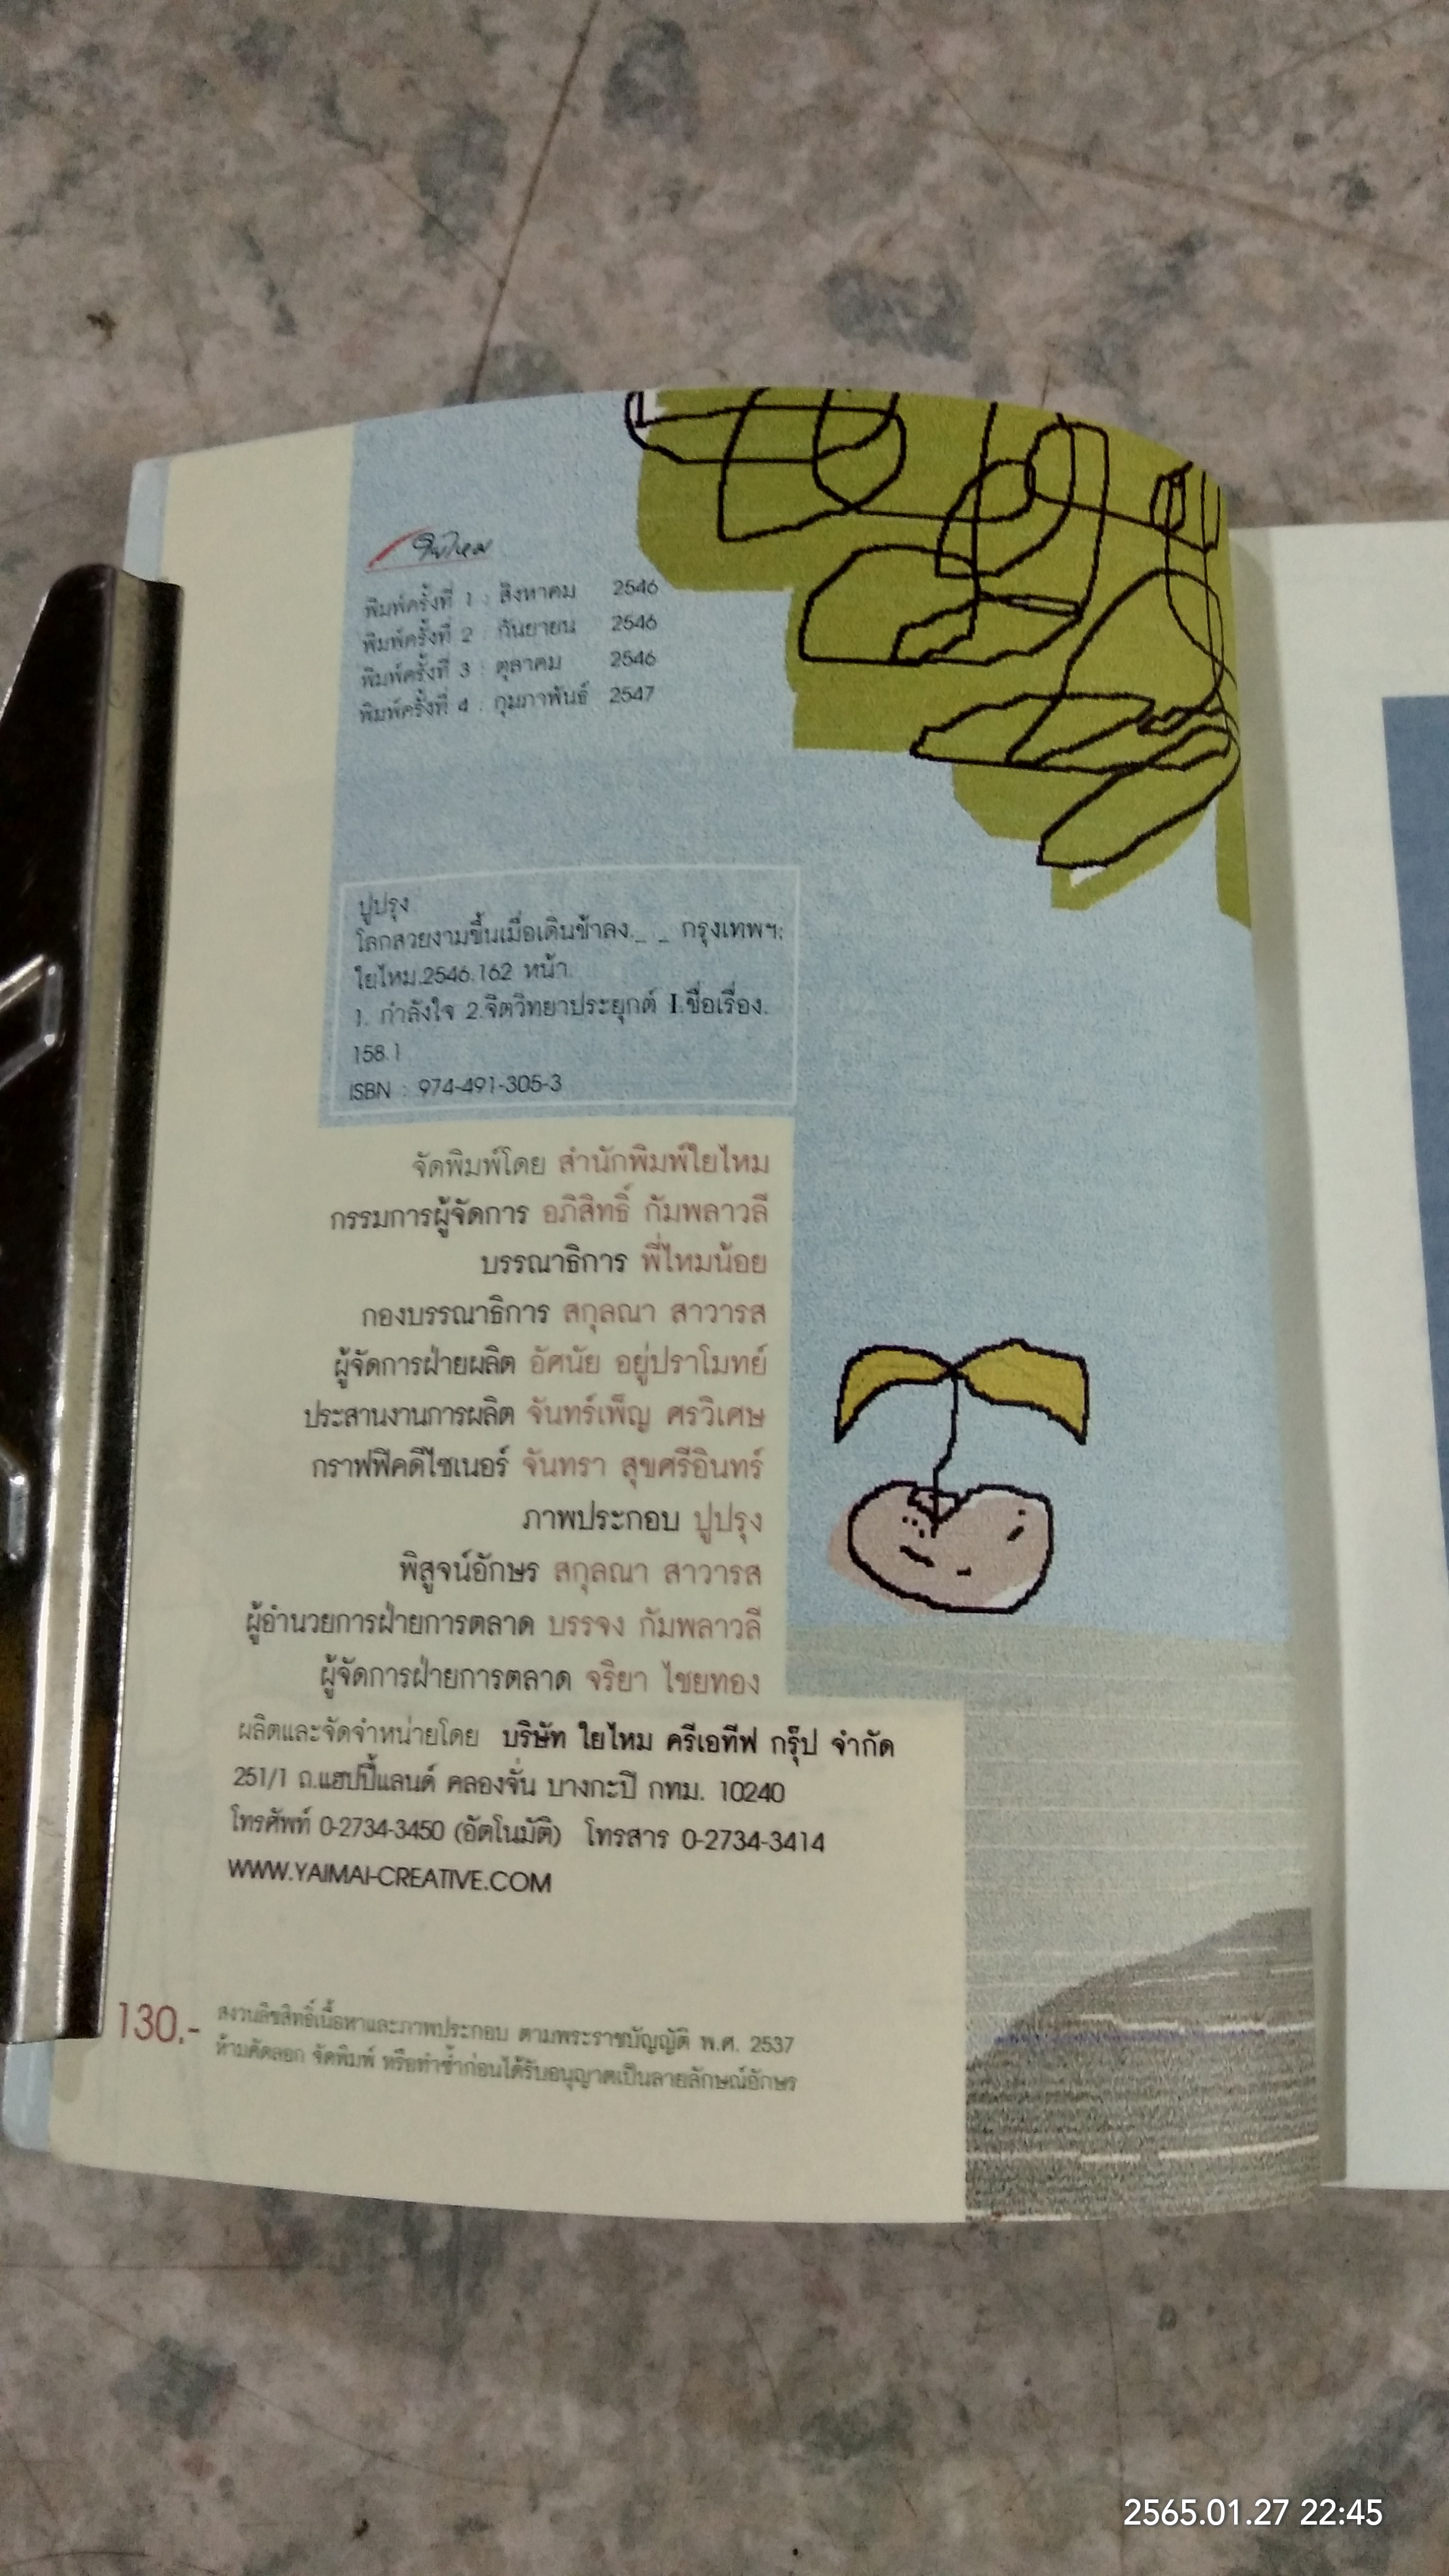 ใยไหม
พิมพ์ครั้งที่ 1 : สิงหาคม 2546
พิมพ์ครั้งที่ 2 : กันยายน 2546
พิมพ์ครั้งที่ 3 : ตุลาคม 2546
พิมพ์ครั้งที่ 4 : กุมภาพันธ์ 2547
ปูปรุง
โลกสวยงามขึ้นเมื่อเดินช้าลง._ _ กรุงเทพฯ:
ใยไหม.2546.162 หน้า.
1. กำลังใจ 2.จิตวิทยาประยุกต์ I.ชื่อเรื่อง.
158.1
ISBN : 974-491-305-3
จัดพิมพ์โดย สำนักพิมพ์ใยไหม
กรรมการผู้จัดการ อภิสิทธิ์ กัมพลาวลี
บรรณาธิการ พี่ไหมน้อย
กองบรรณาธิการ สกุลณา สาวารส
ผู้จัดการฝ่ายผลิต อัศนัย อยู่ปราโมทย์
ประสานงานการผลิต จันทร์เพ็ญ ศรวิเศษ
กราฟฟิคดีไซเนอร์ จันทรา สุขศรีอินทร์
ภาพประกอบ ปูปรุง
พิสูจน์อักษร สกุลณา สาวารส
ผู้อำนวยการฝ่ายการตลาด บรรจง กัมพลาวลี
ผู้จัดการฝ่ายการตลาด จริยา ไชยทอง
ผลิตและจัดจำหน่ายโดย บริษัท ใยไหม ครีเอทีฟ กรุ๊ป จำกัด
251/1 ถ.แฮปปี้แลนด์ คลองจั่น บางกะปี กทม. 10240
โทรศัพท์ 0-2734-3450 (อัตโนมัติ) โทรสาร 0-2734-3414
WWW.YAIMAI-CREATIVE.COM
130.-
สงวนลิขสิทธิ์เนื้อหาและภาพประกอบ ตามพระราชบัญญัติ พ.ศ. 2537
ห้ามคัดลอก จัดพิมพ์ หรือทำซ้ำก่อนได้รับอนุญาตเป็นลายลักษณ์อักษร
2565.01.27 22:45